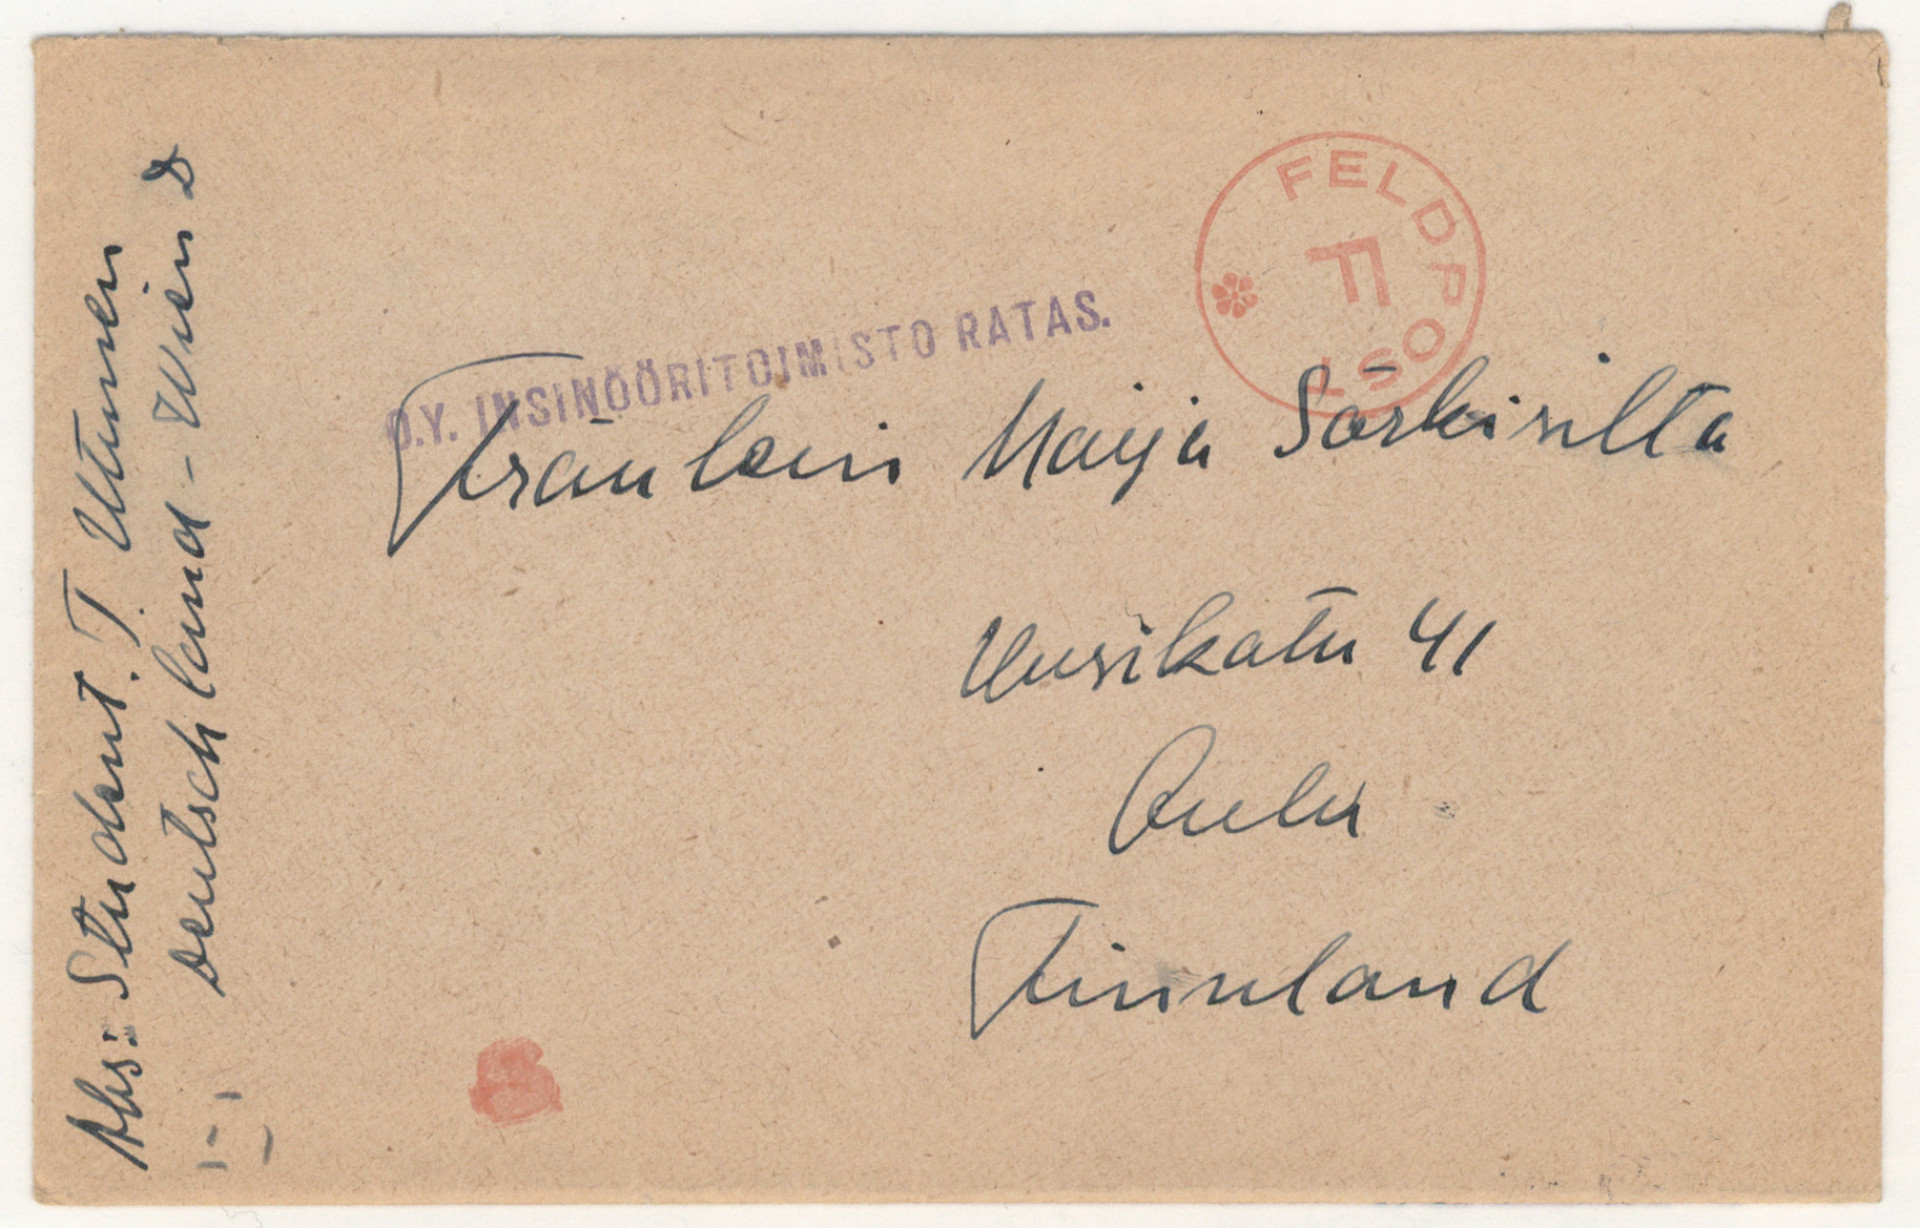 Abs: Student. T. Utunen
Deutschland - Wien D
FELDPOST
F
O.Y. INSINÖÖRITOIMISTO RATAS.
Fräulein Maija Särkisilta
Uusikatu 41
Oulu
Finnland